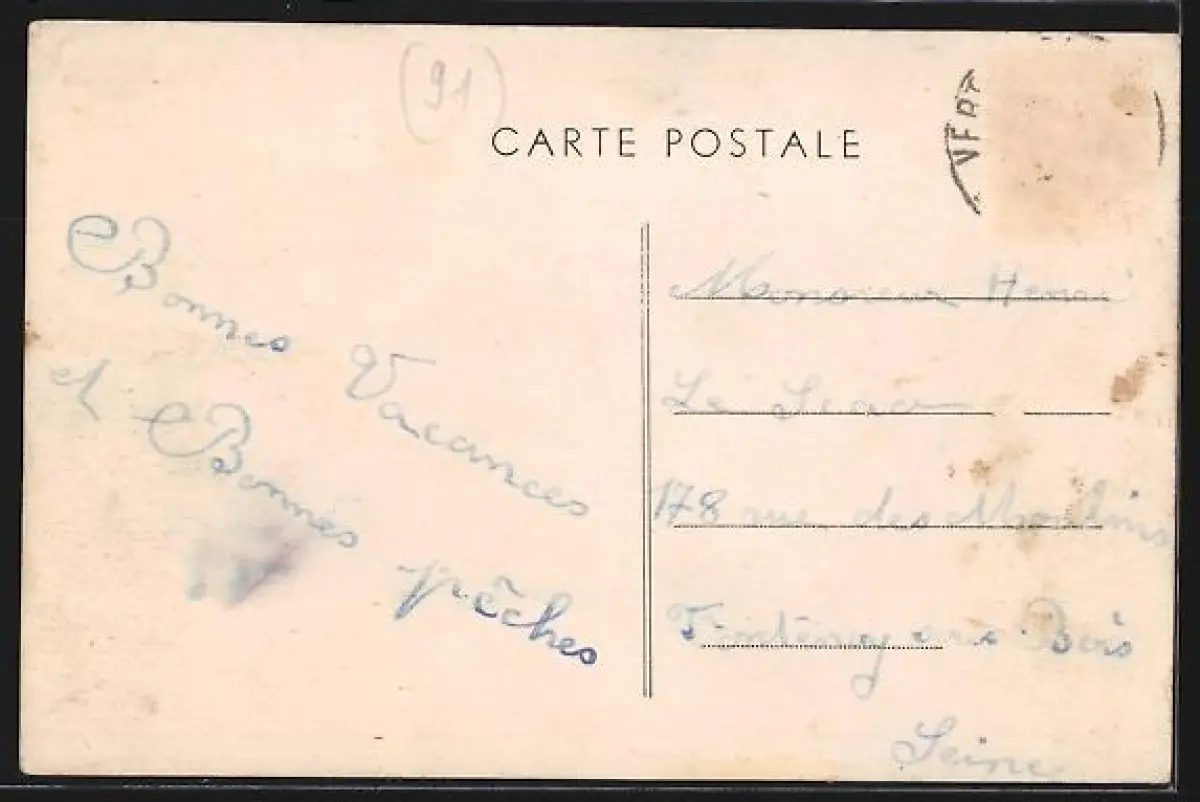 (91)
CARTE POSTALE
VERT
Bonnes Vacances
et Bonnes pêches
Monsieur Henri
Le
178 rue des Moulins
sous Bois
Seine